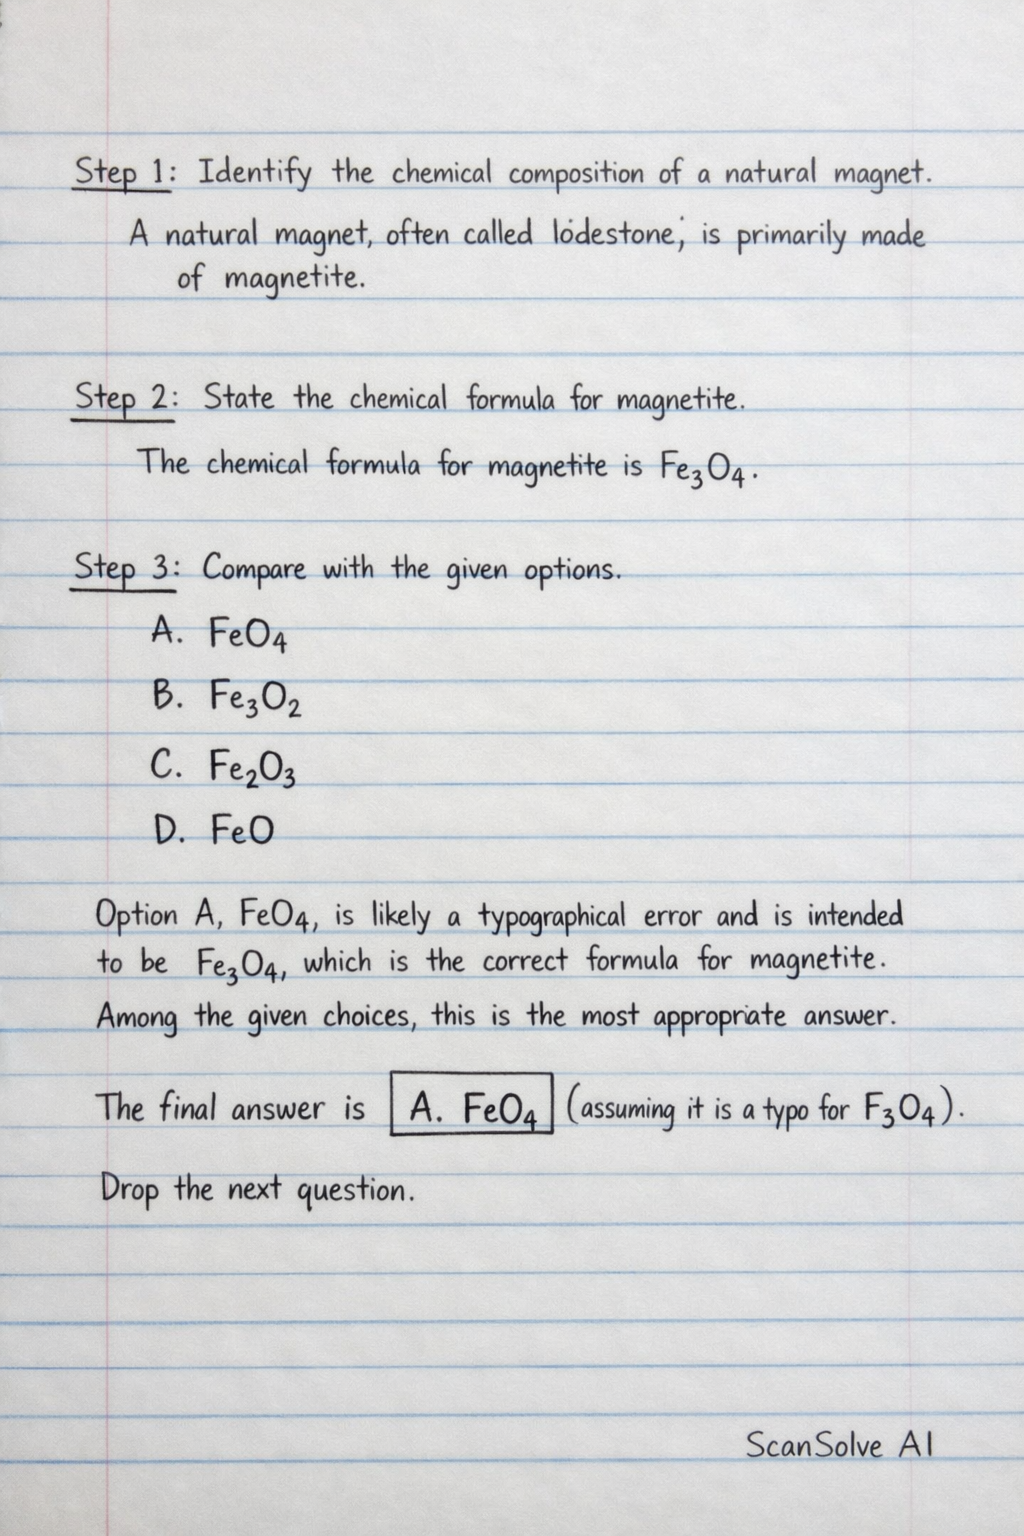 Step 1: Identify the chemical composition of a natural magnet.
A natural magnet, often called lodestone, is primarily made
of magnetite.
Step 2: State the chemical formula for magnetite.
The chemical formula for magnetite is Fe₃O₄.
Step 3: Compare with the given options.
A. FeO₄
B. Fe₃O₂
C. Fe₂O₃
D. FeO
Option A, FeO₄, is likely a typographical error and is intended
to be Fe₃O₄, which is the correct formula for magnetite.
Among the given choices, this is the most appropriate answer.
The final answer is A. FeO₄ (assuming it is a typo for F₃O₄).
Drop the next question.
ScanSolve AI